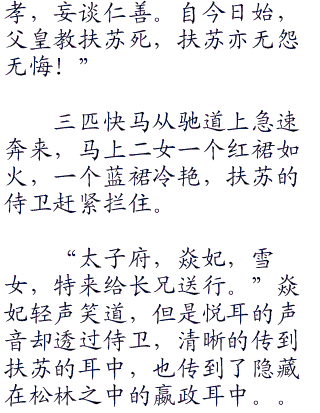 孝，妄谈仁善。自今日始，
父皇教扶苏死，扶苏亦无怨
无悔！”
三匹快马从驰道上急速
奔来，马上二女一个红裙如
火，一个蓝裙冷艳，扶苏的
侍卫赶紧拦住。
“太子府，焱妃，雪
女，特来给长兄送行。”焱
妃轻声笑道，但是悦耳的声
音却透过侍卫，清晰的传到
扶苏的耳中，也传到了隐藏
在松林之中的嬴政耳中。。